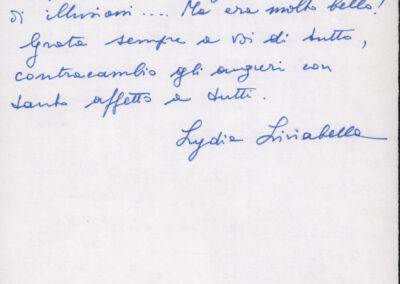 di illusioni.... Ma era molto bello!
Grata sempre a voi di tutto,
contraccambio gli auguri con
tanto affetto a tutti.
Lydia Liviabella